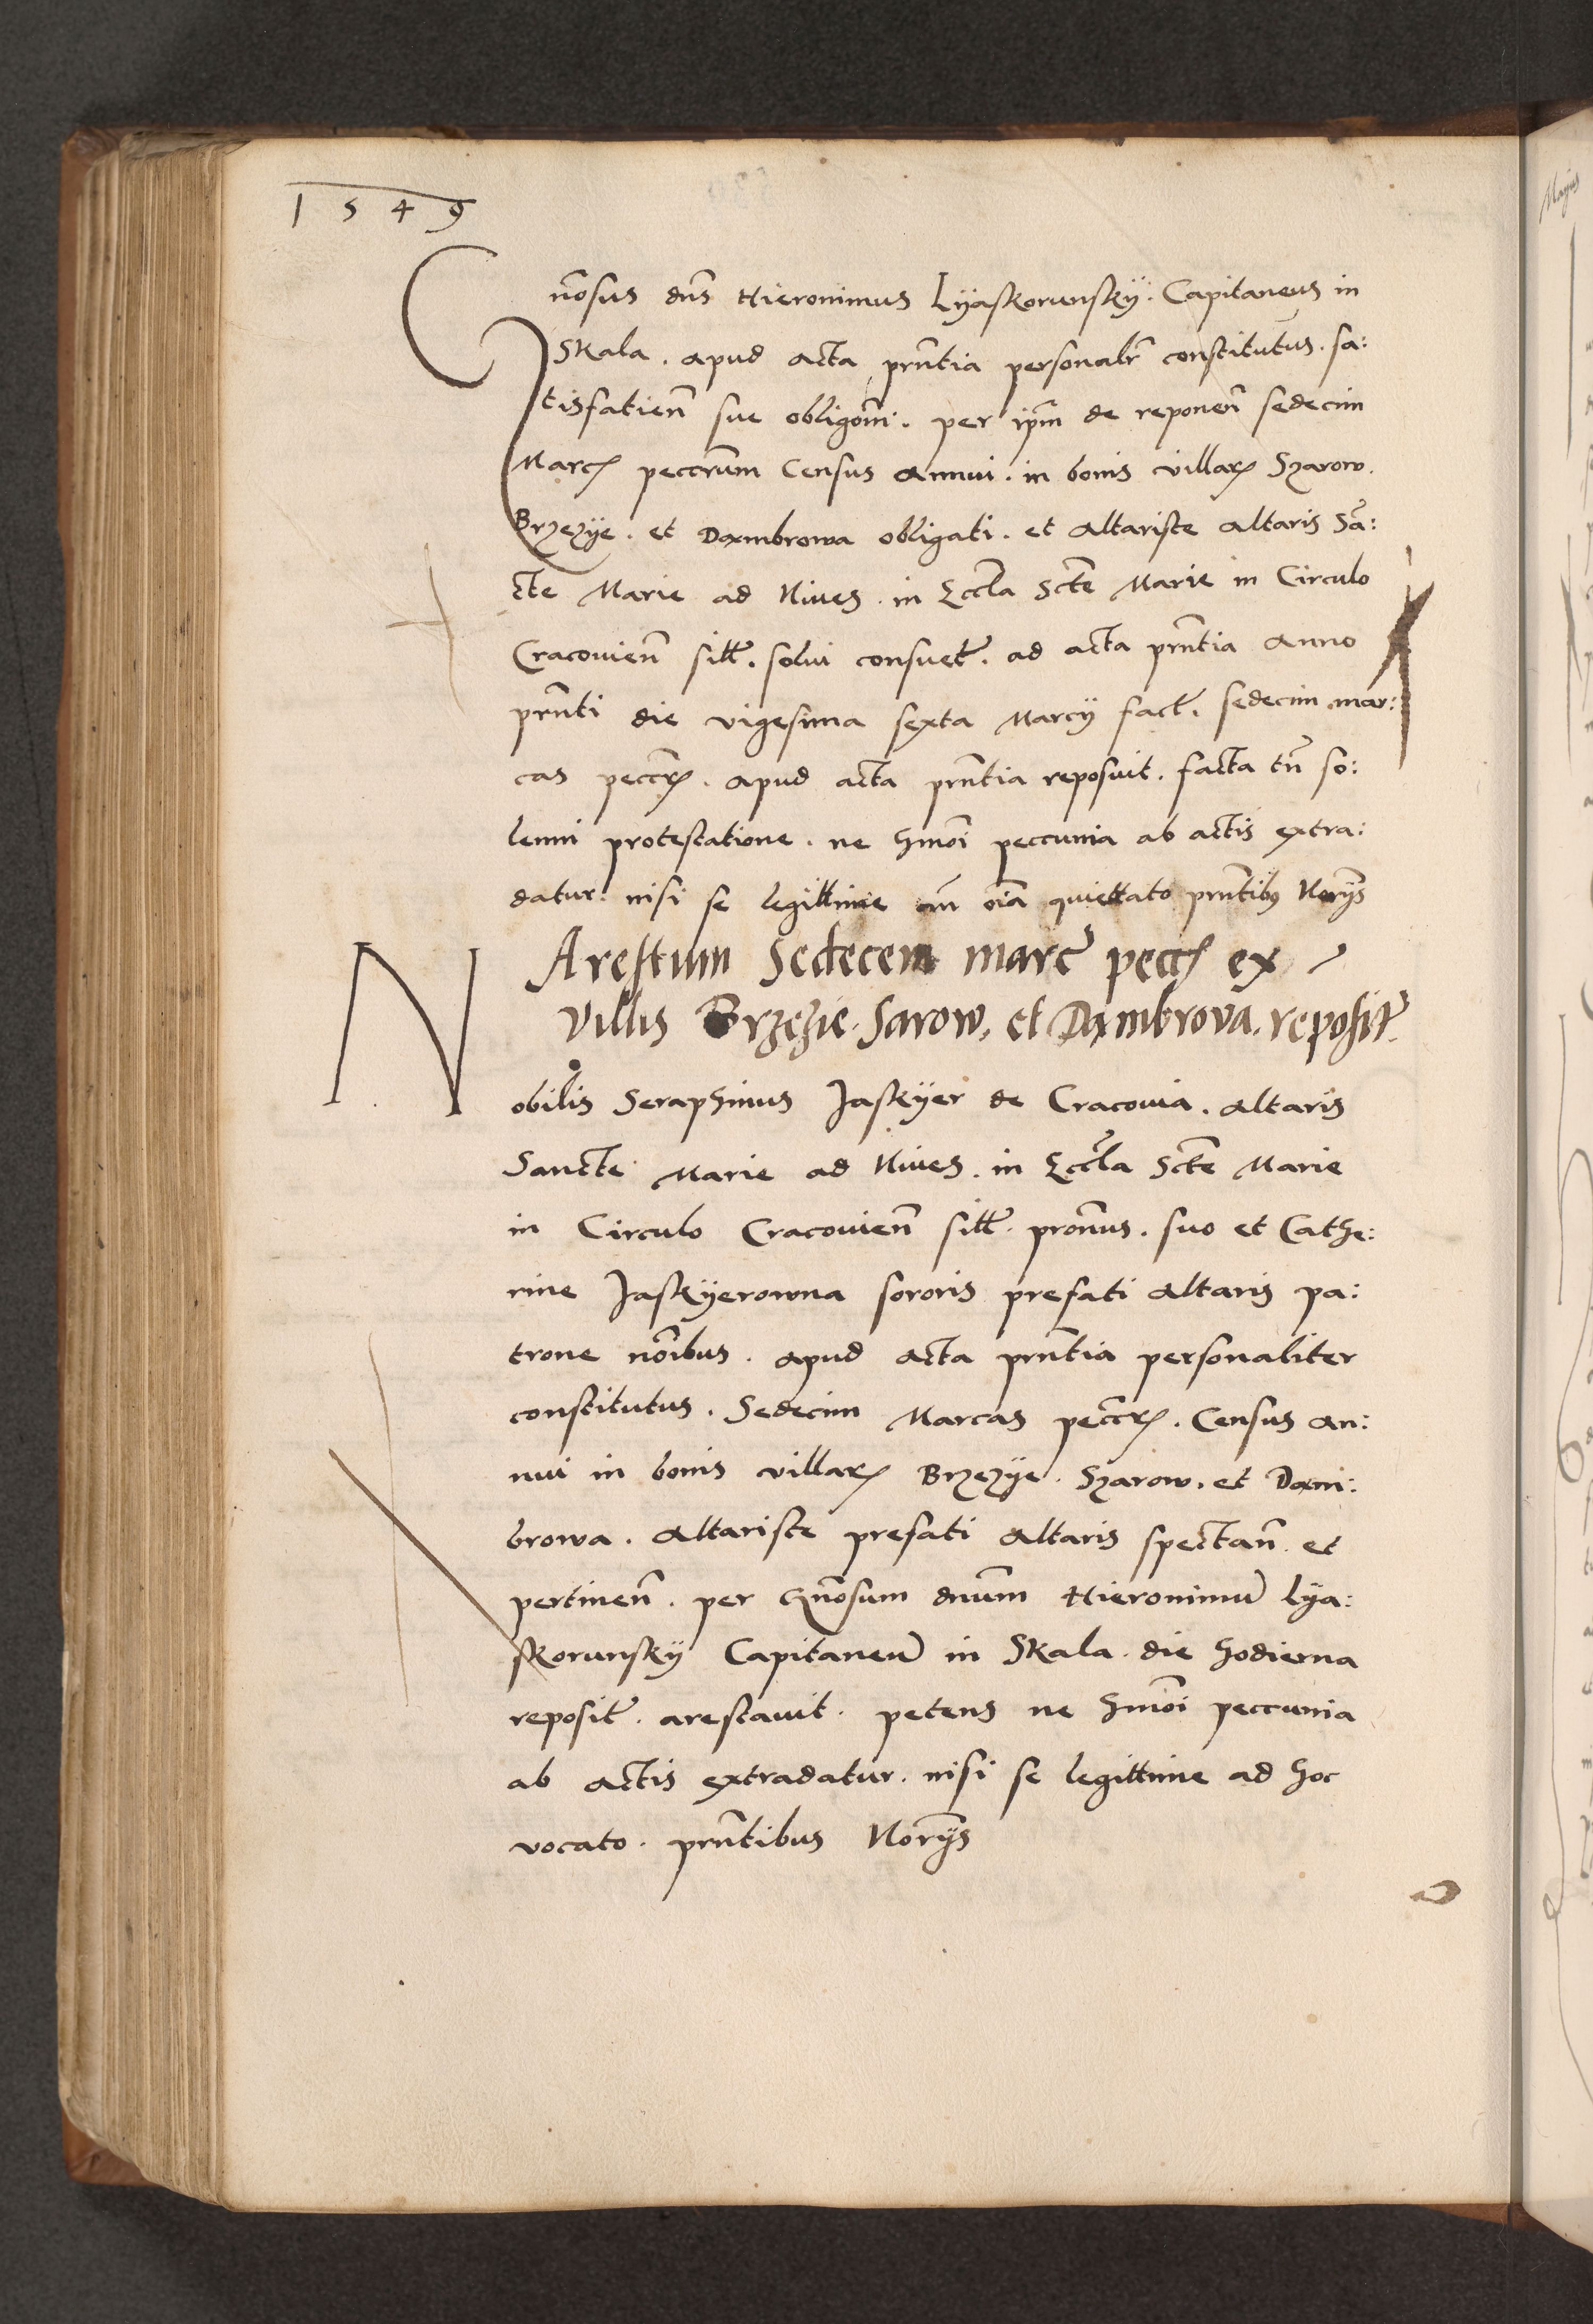 1549
Gnosus dns Hieronimus Lyaskorunsky. Capitaneus in
Skala. apud acta prntia personalr constitutus. sa:
tisfatien sue obligoni. per ipm de reponen sedecim
Marcs peccrum Census Annui. in bonis villarum Szarow.
Brzezye. et Dambrowa obligati. et Altariste Altaris Sa:
cte Marie ad Nives. in Eccla Scte Marie in Circulo
Cracovien sitt. solvi consuet. ad acta prntia Anno
prnti die vigesima sexta Marcy fact. sedecim mar:
cas pecc. apud acta prntia reposuit. facta tn so:
lenni protestatione. ne hmoi peccunia ab actis extra:
datur. nisi se legittime an oia quiettato prntibus Norys
Arestum Sedecem marc pecc ex
villis Brzezie. Sarow, et Dambrova. reposit.
Nobilis Seraphinus Jaskyer de Cracovia. Altaris
Sancte Marie ad Nives. in Eccla Scte Marie
in Circulo Cracovien sitt. pronus. suo et Cathe:
rine Jaskyerowna sororis prefati Altaris pa:
trone noibus. apud acta prntia personaliter
constitutus. Sedecim Marcas pecc. Census an:
nui in bonis villarum Brzezye. Szarow. et Dam:
browa. Altariste prefati Altaris spectan. et
pertinen. per Gnosum dnum Hieronimu Lya:
skorunsky Capitaneu in Skala. die hodierna
reposit. arestavit. petens ne hmoi peccunia
ab actis extradatur. nisi se legittime ad hoc
vocato. prntibus Norys